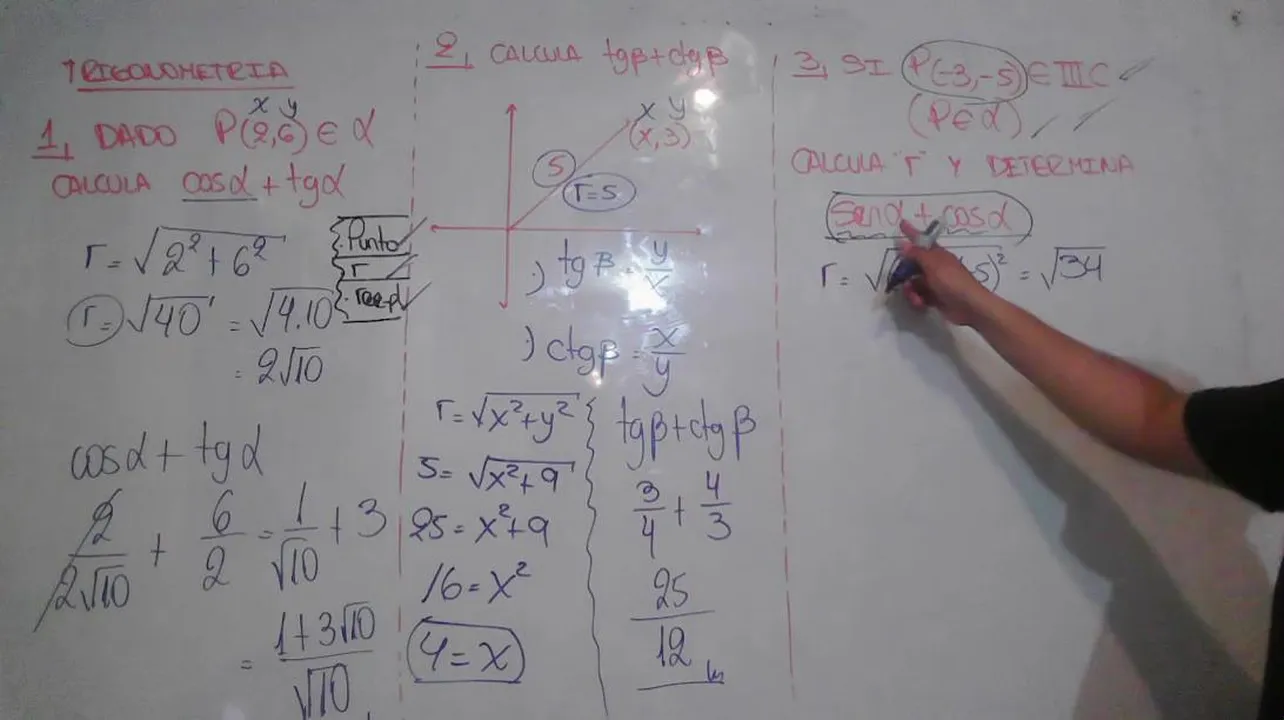 TRIGONOMETRIA
x y
1, DADO P(2,6) ∈ α
CALCULA cosα + tgα
r = √2² + 6²
r = √40 = √4.10
= 2√10
· Punto
· r
cosα + tgα
2/2√10 + 6/2 = 1/√10 + 3
= 1+3√10/√10
2, CALCULA tgβ + ctgβ
x y
(x,3)
5
r=5
·) tgβ = y/x
·) ctgβ = x/y
r = √x²+y²
5 = √x²+9
25 = x²+9
16 = x²
4 = x
tgβ + ctgβ
3/4 + 4/3
25/12
3, SI P(-3,-5) ∈ IIIC
(P∈α)
CALCULA "r" Y DETERMINA
senα + cosα
r = √ -5)² = √34